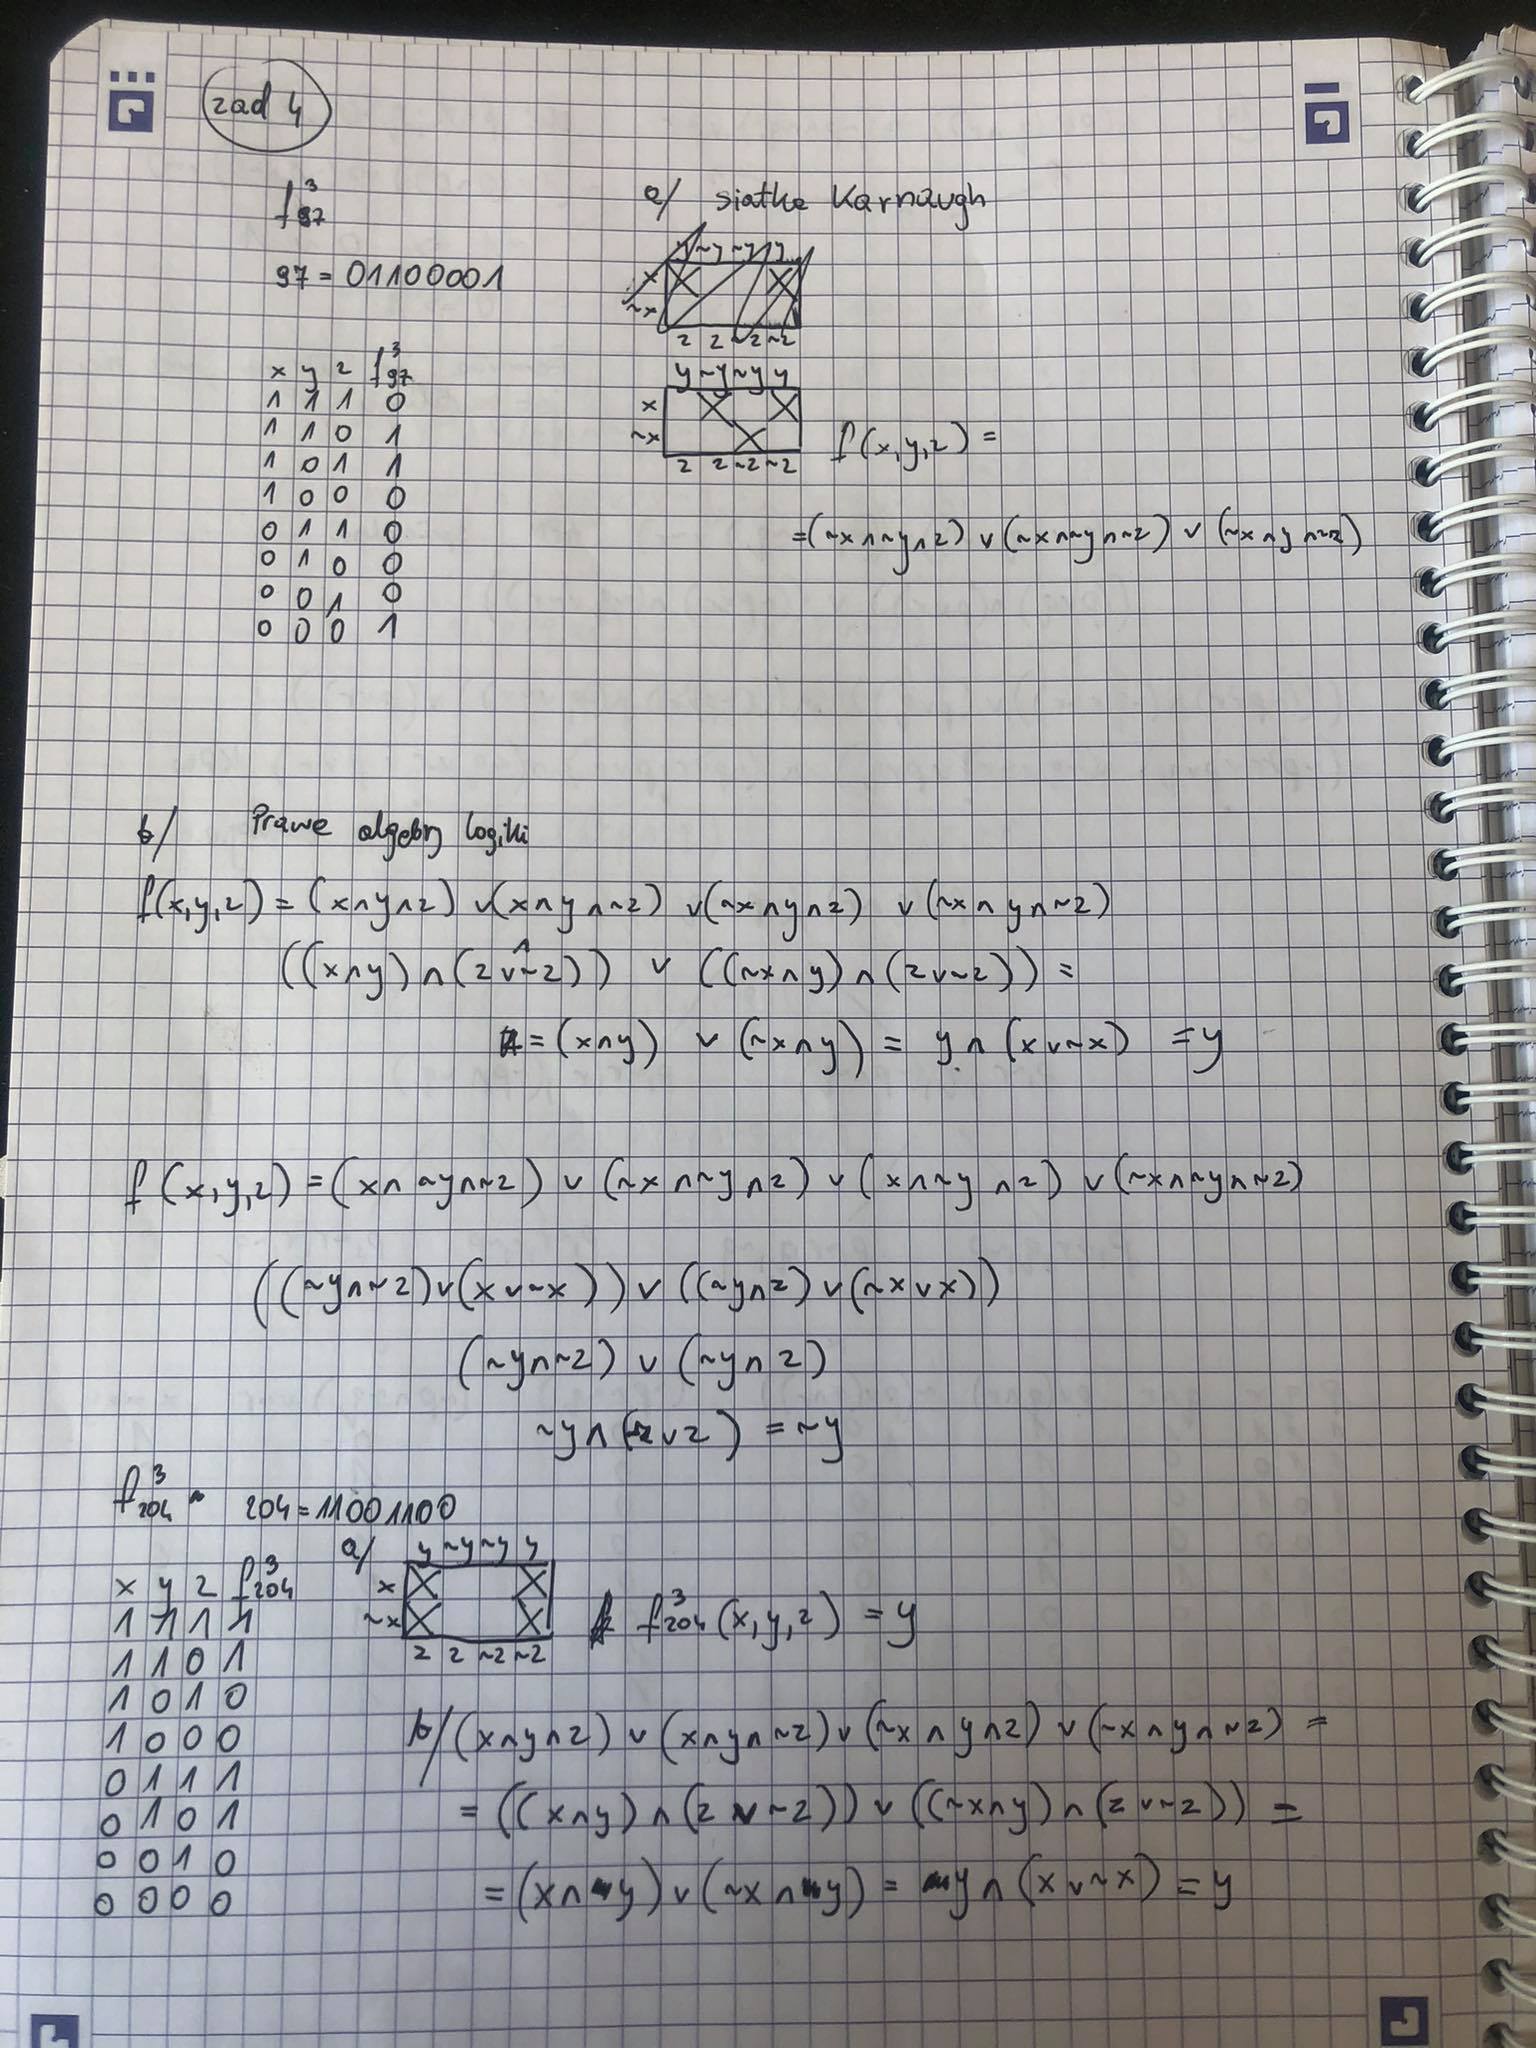 zad 4
f³97
97 = 01100001
x y z f³97
1 1 1 0
1 1 0 1
1 0 1 1
1 0 0 0
0 1 1 0
0 1 0 0
0 0 1 0
0 0 0 1
a/ siatke Karnaugh
y ~y ~y y
x
~x
z z ~z ~z
y ~y ~y y
x
~x
z z ~z ~z
f(x,y,z) =
=(~x∧~y∧z) ∨ (~x∧~y∧~z) ∨ (~x∧y∧~z)
b/ Prawe algebry logiki
f(x,y,z) = (x∧y∧z) ∨(x∧y∧~z) ∨(~x∧y∧z) ∨(~x∧y∧~z)
((x∧y)∧(z∨~z)) ∨ ((~x∧y)∧(z∨~z)) =
= (x∧y) ∨ (~x∧y) = y∧(x∨~x) = y
f(x,y,z) = (x∧~y∧~z) ∨ (~x∧~y∧z) ∨ (x∧~y∧z) ∨ (~x∧~y∧~z)
((~y∧~z)∨(x∨~x)) ∨ ((~y∧z)∨(~x∨x))
(~y∧~z) ∨ (~y∧z)
~y∧(~z∨z) = ~y
f³204 - 204 = 11001100
x y z f³204
1 1 1 1
1 1 0 1
1 0 1 0
1 0 0 0
0 1 1 1
0 1 0 1
0 0 1 0
0 0 0 0
a/ y ~y ~y y
x
~x
z z ~z ~z
f³204(x,y,z) = y
b/ (x∧y∧z) ∨ (x∧y∧~z) ∨ (~x∧y∧z) ∨ (~x∧y∧~z) =
= ((x∧y)∧(z∨~z)) ∨ ((~x∧y)∧(z∨~z)) =
= (x∧y)∨(~x∧y) = y∧(x∨~x) = y